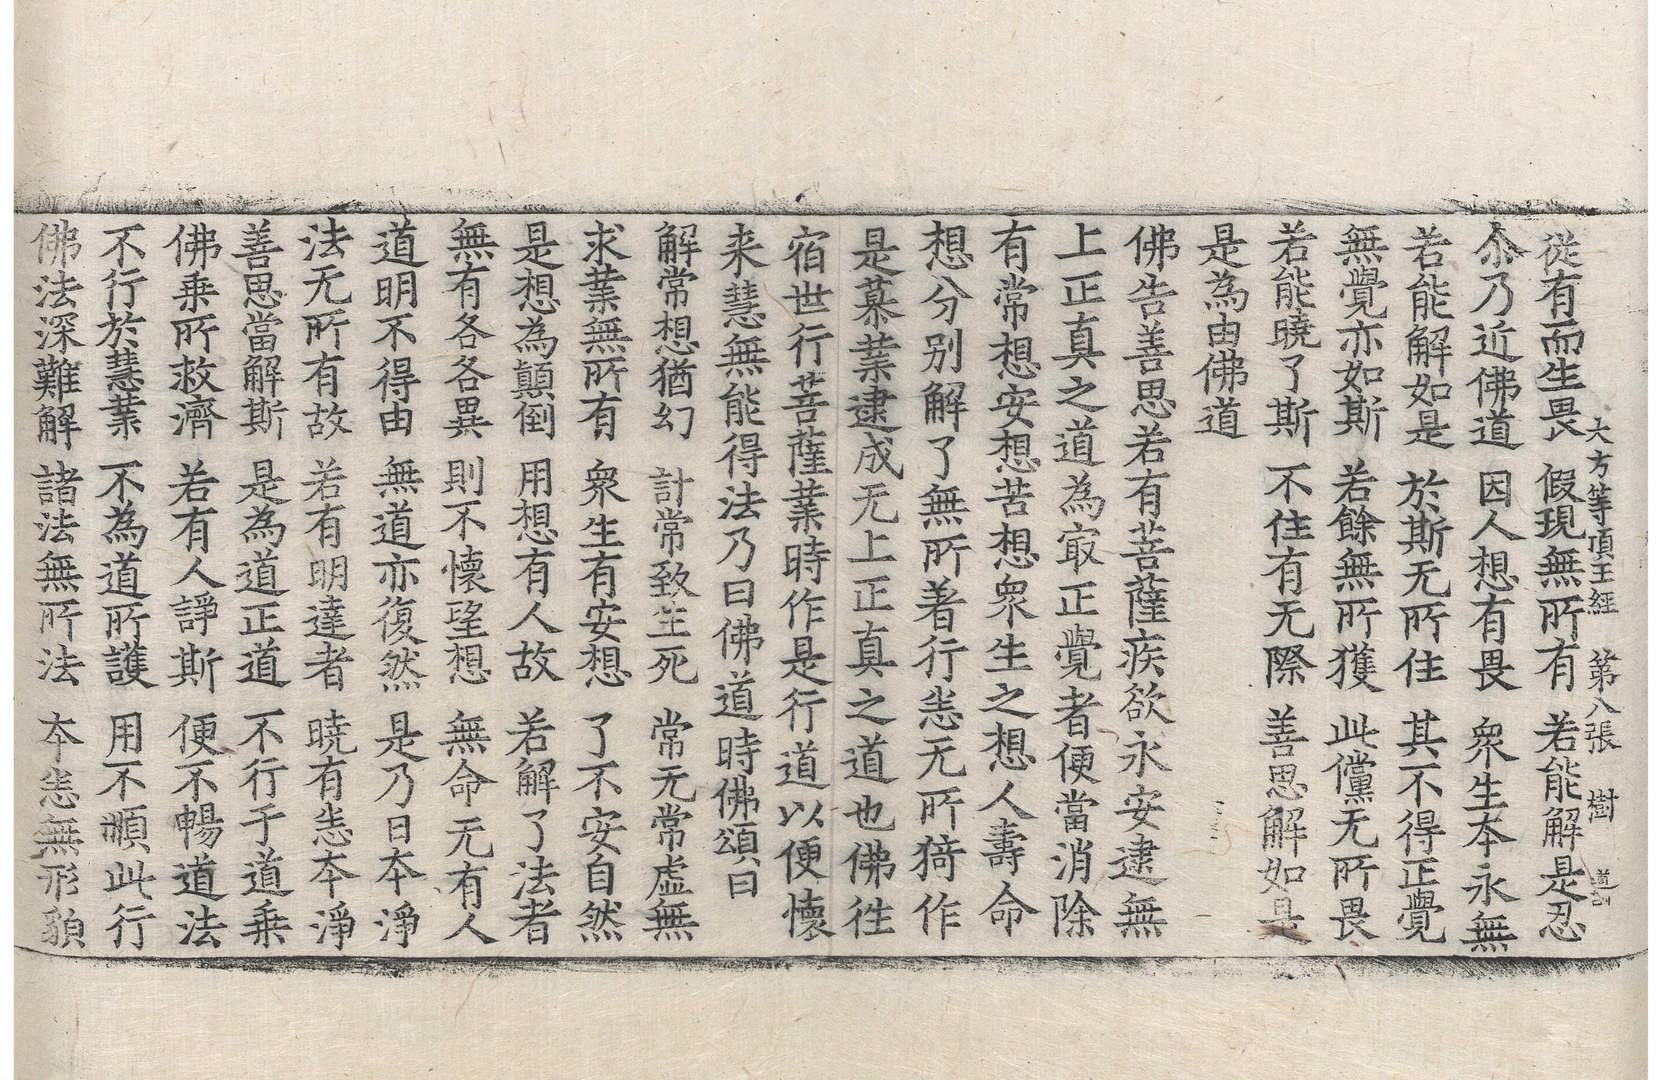 大方等頂王經 第八張 樹 道訓
從有而生畏 假現無所有 若能解是忍
尒乃近佛道 因人想有畏 衆生本永無
若能解如是 於斯无所住 其不得正覺
無覺亦如斯 若餘無所獲 此儻无所畏
若能曉了斯 不住有无際 善思解如是
是為由佛道
佛告善思若有菩薩疾欲永安逮無
上正真之道為㝡正覺者便當消除
有常想安想苦想衆生之想人壽命
想分别解了無所著行恙无所猗作
是慕業逮成无上正真之道也佛徃
宿世行菩薩業時作是行道以便懷
来慧無能得法乃曰佛道時佛頌曰
解常想猶幻 計常致生死 常无常虛無
求業無所有 衆生有安想 了不安自然
是想為顛倒 用想有人故 若解了法者
無有各各異 則不懷望想 無命无有人
道明不得由 無道亦復然 是乃日本淨
法无所有故 若有明達者 曉有恙本淨
善思當解斯 是為道正道 不行于道乗
佛乗所救濟 若有人諍斯 便不暢道法
不行於慧業 不為道所護 用不順此行
佛法深難解 諸法無所法 本恙無形貌